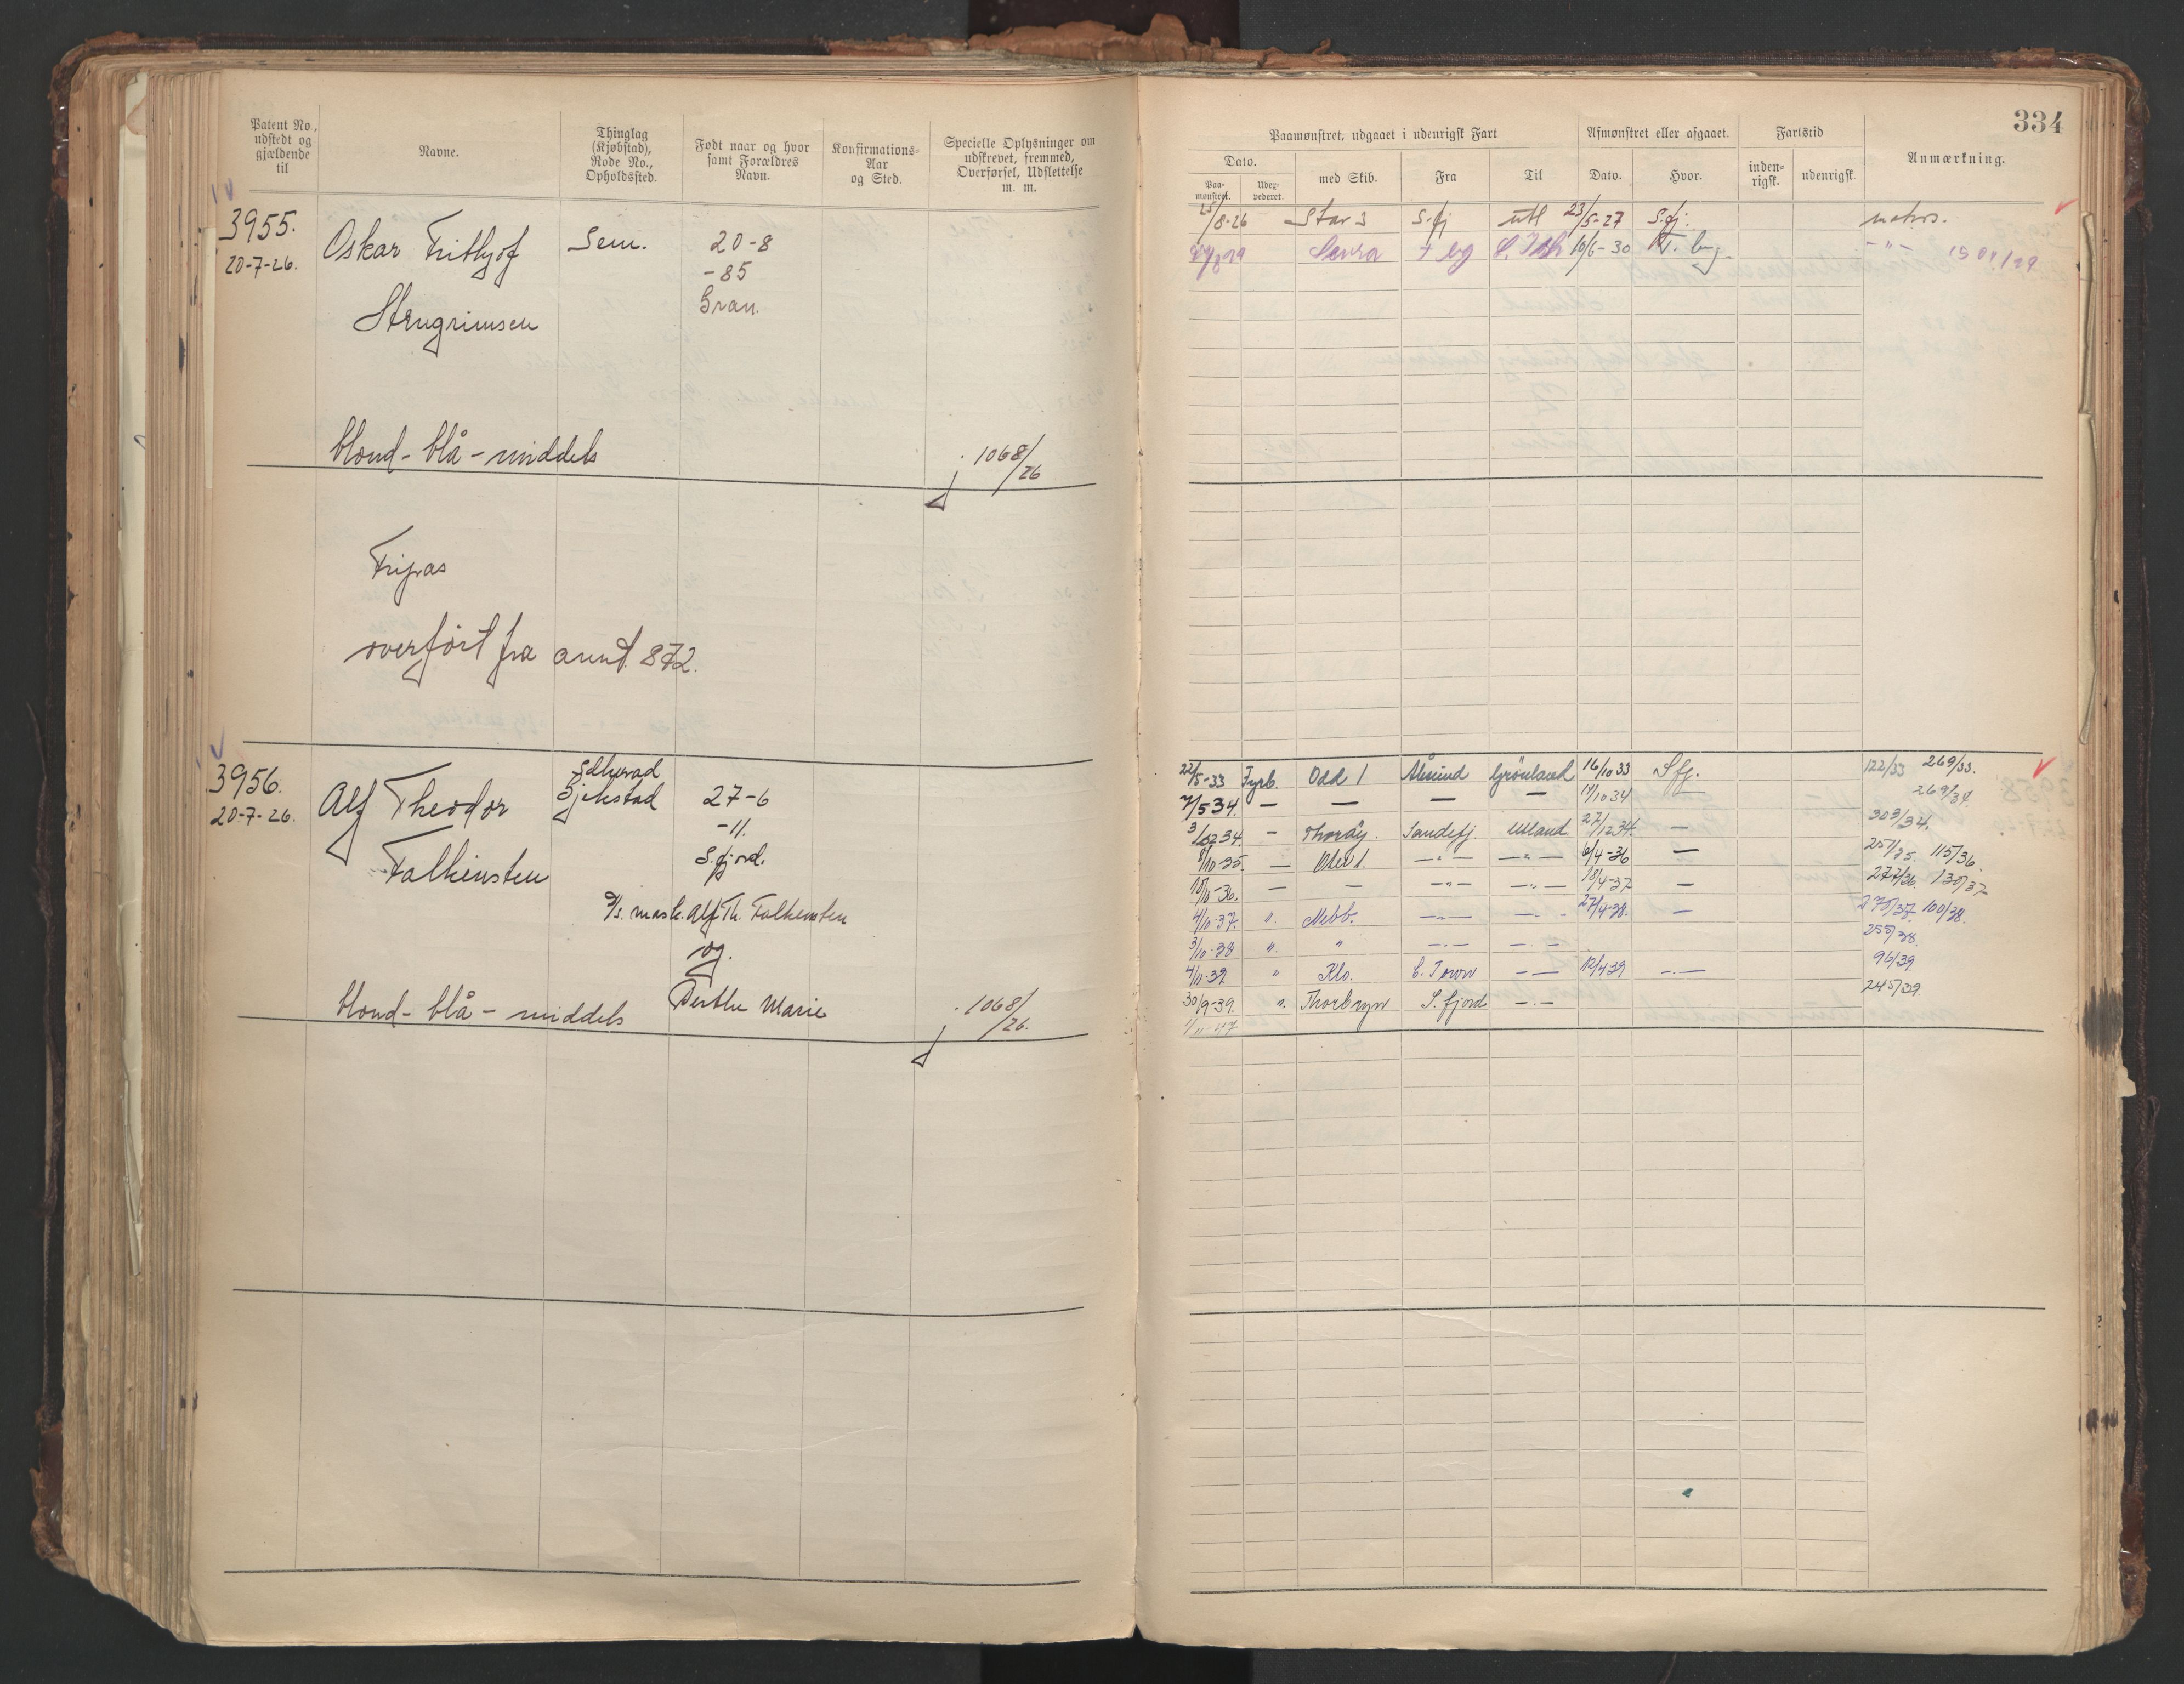 334
Patent No. udstedt og gjældende til
Navne.
Thinglag (Kjøbstad), Rode No., Opholdssted.
Født naar og hvor samt Forældres Navn.
Konfirmations-Aar og Sted.
Specielle Oplysninger om udskrevet, fremmed, Overførsel, Udslettelse m. m.
3955.
20-7-26.
Oskar Frithjof Sem. 20-8
-85
Gran.
Stengrimsen
blond - blå - middels j 1068/26
Fripas
overført fra annt. 872.
3956.
20-7-26.
Alf Theodor
Sjekstad 27-6
-11.
S.fjord.
Falkensten
S/s. mask. Alf Th. Falkensten
og
Berthe Marie
blond - blå - middels j. 1068/26.
Paamønstret, udgaaet i udenrigsk Fart
Afmønstret eller afgaaet.
Fartstid
Anmærkning.
Dato.
Paa-mønstret.
Udex-pederet.
med Skib.
Fra
Til
Dato.
Hvor.
inden-rigsk.
udenrigsk.
25/8-26 Star 3 S.fj utl 23/5-27 S.fj.
Sevra T bg 10/6-30 T. bg. -"-
22/5-33 Fyrb. Odd 1 Ålesund Grönland 16/10 33 S fj. 122/33 269/33.
7/5 34. — — — — 14/10 34 269/34
3/1234. - Thorøy. Sandefj. Utland 27/1234. — 303/34.
8/10-35. — -"- -"- 6/4-36 — 257/35. 115/36.
10/11-36. — — -"- -"- 18/4-37 — 277/36. 130/37
4/10-37. ". -"- 27/4-38. — 275/37 100/38.
3/10-38 ". " -.- -.- 255/38.
" Klo. C. Town -.- 12/4 39 -.- 96/39.
30/9-39. ". Thorbryn S. fjord -.- 245/39.
1/11-47